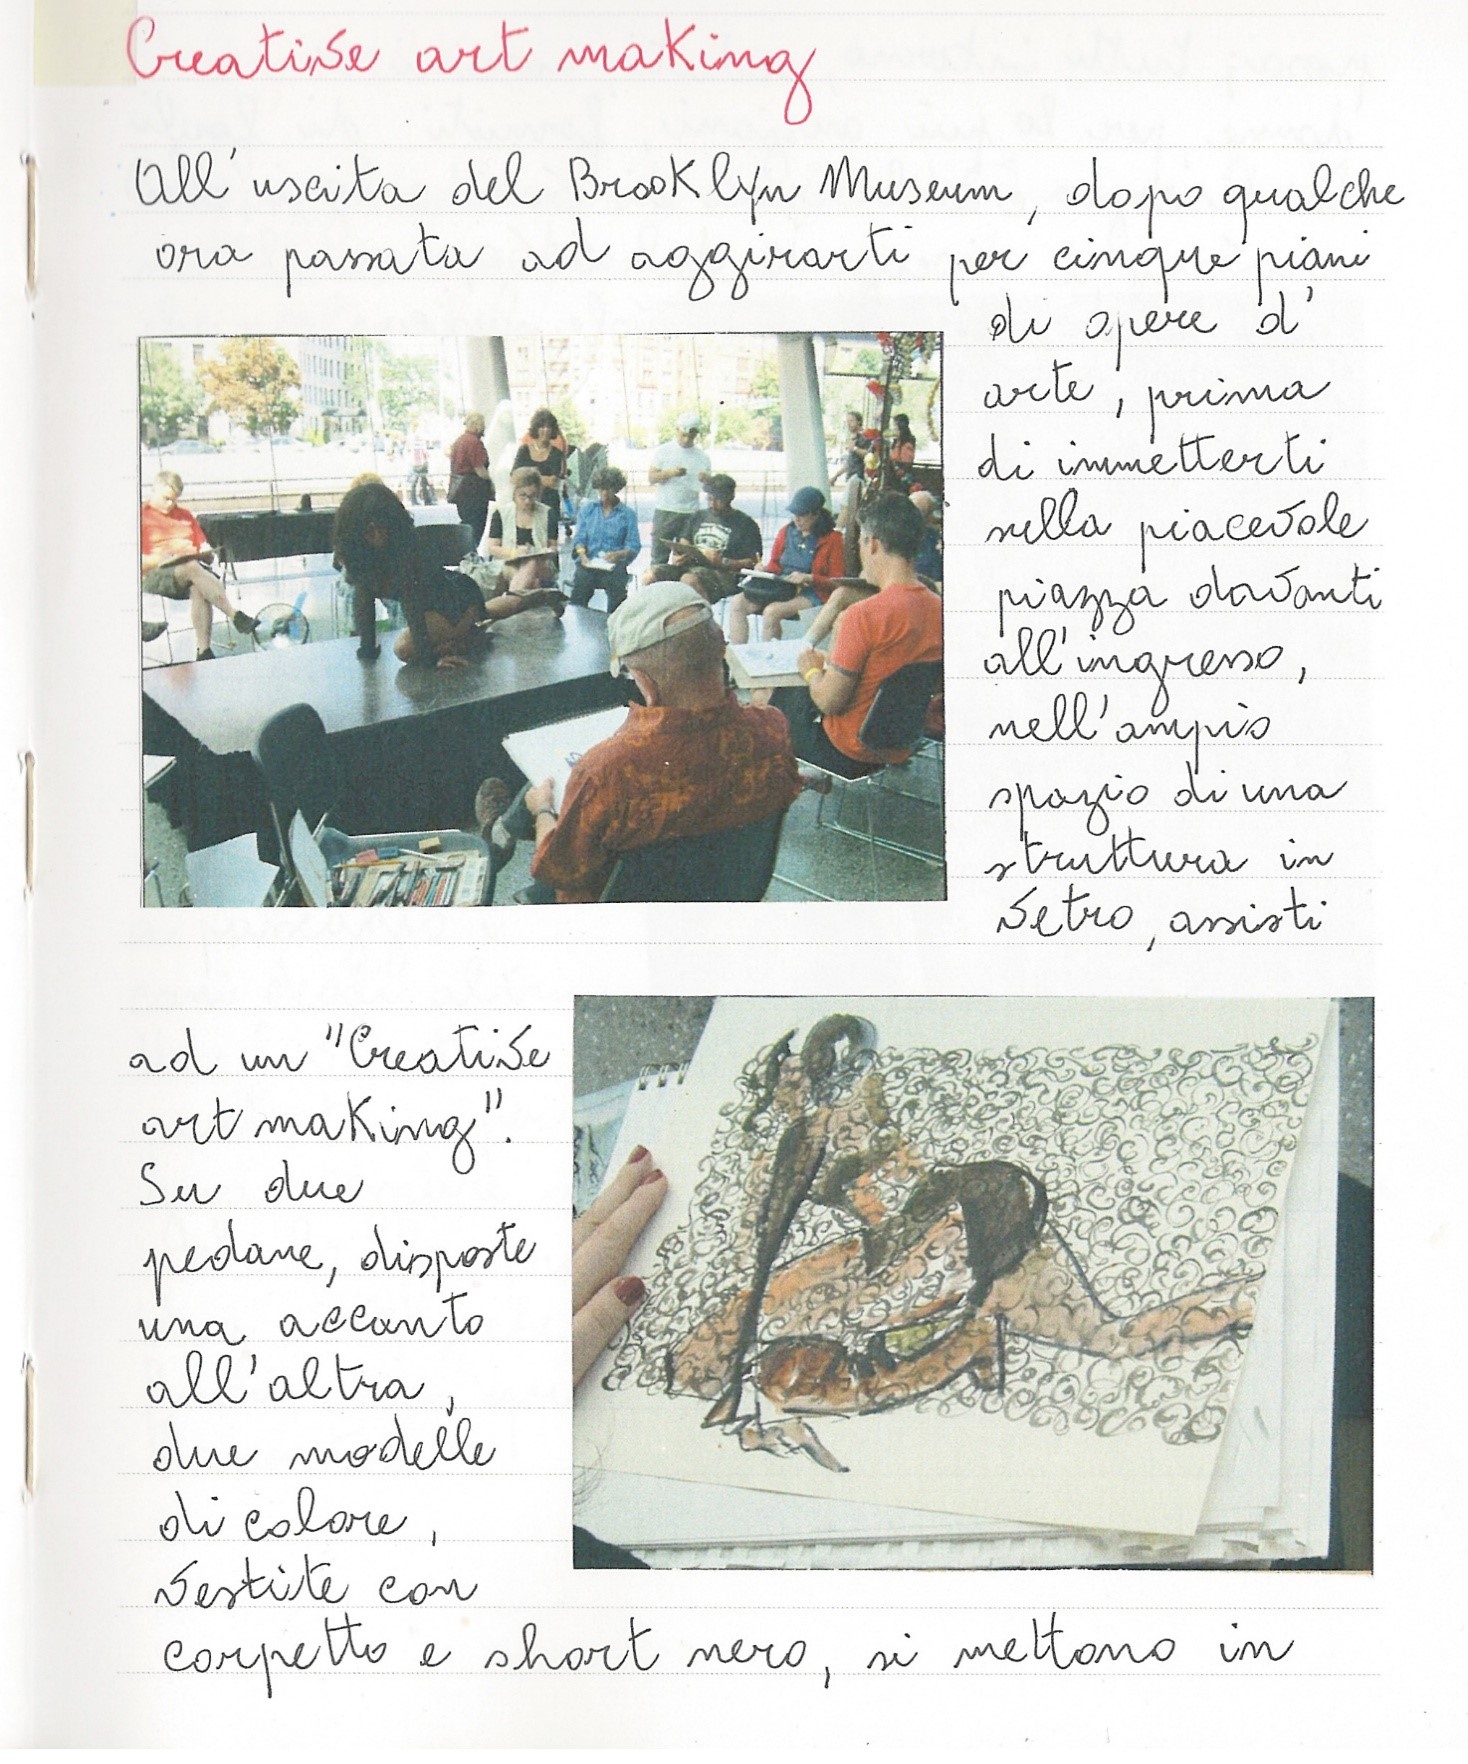 Creative art making
All'uscita del Brooklyn Museum, dopo qualche
ora passata ad aggirarti per cinque piani
di opere d'
arte, prima
di immetterti
nella piacevole
piazza davanti
all'ingresso,
nell'ampio
spazio di una
struttura in
vetro, assisti
ad un "Creative
art making".
Su due
pedane, disposte
una accanto
all'altra,
due modelle
di colore,
vestite con
corpetto e short nero, si mettono in